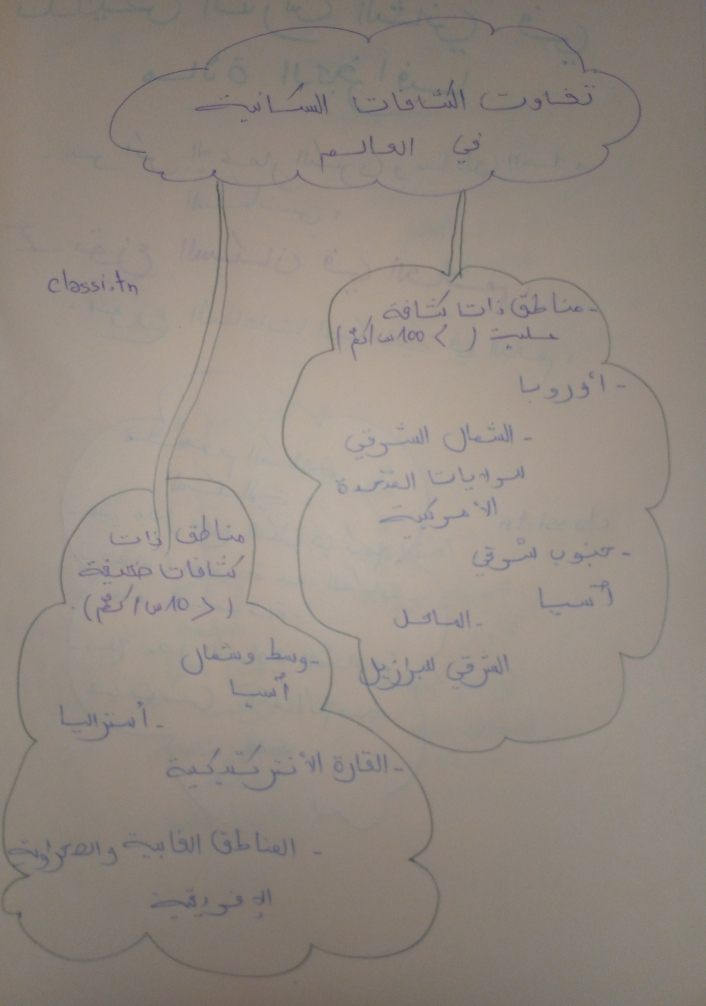 تفاوت الكثافات السكانية
في العالم
classi.tn
- مناطق ذات كثافة
علية ( > 100 س/كم²)
- أوروبا
- الشمال الشرقي
للولايات المتحدة
الأمريكية
- جنوب شرقي
أسيا
- الساحل
الشرقي للبرازيل
مناطق ذات
كثافات ضعيفة
( < 10 س/كم²)
- وسط وشمال
أسيا
- أستراليا
- القارة الأنتركتيكية
- المناطق الغابية والصحراوية
الإفريقية